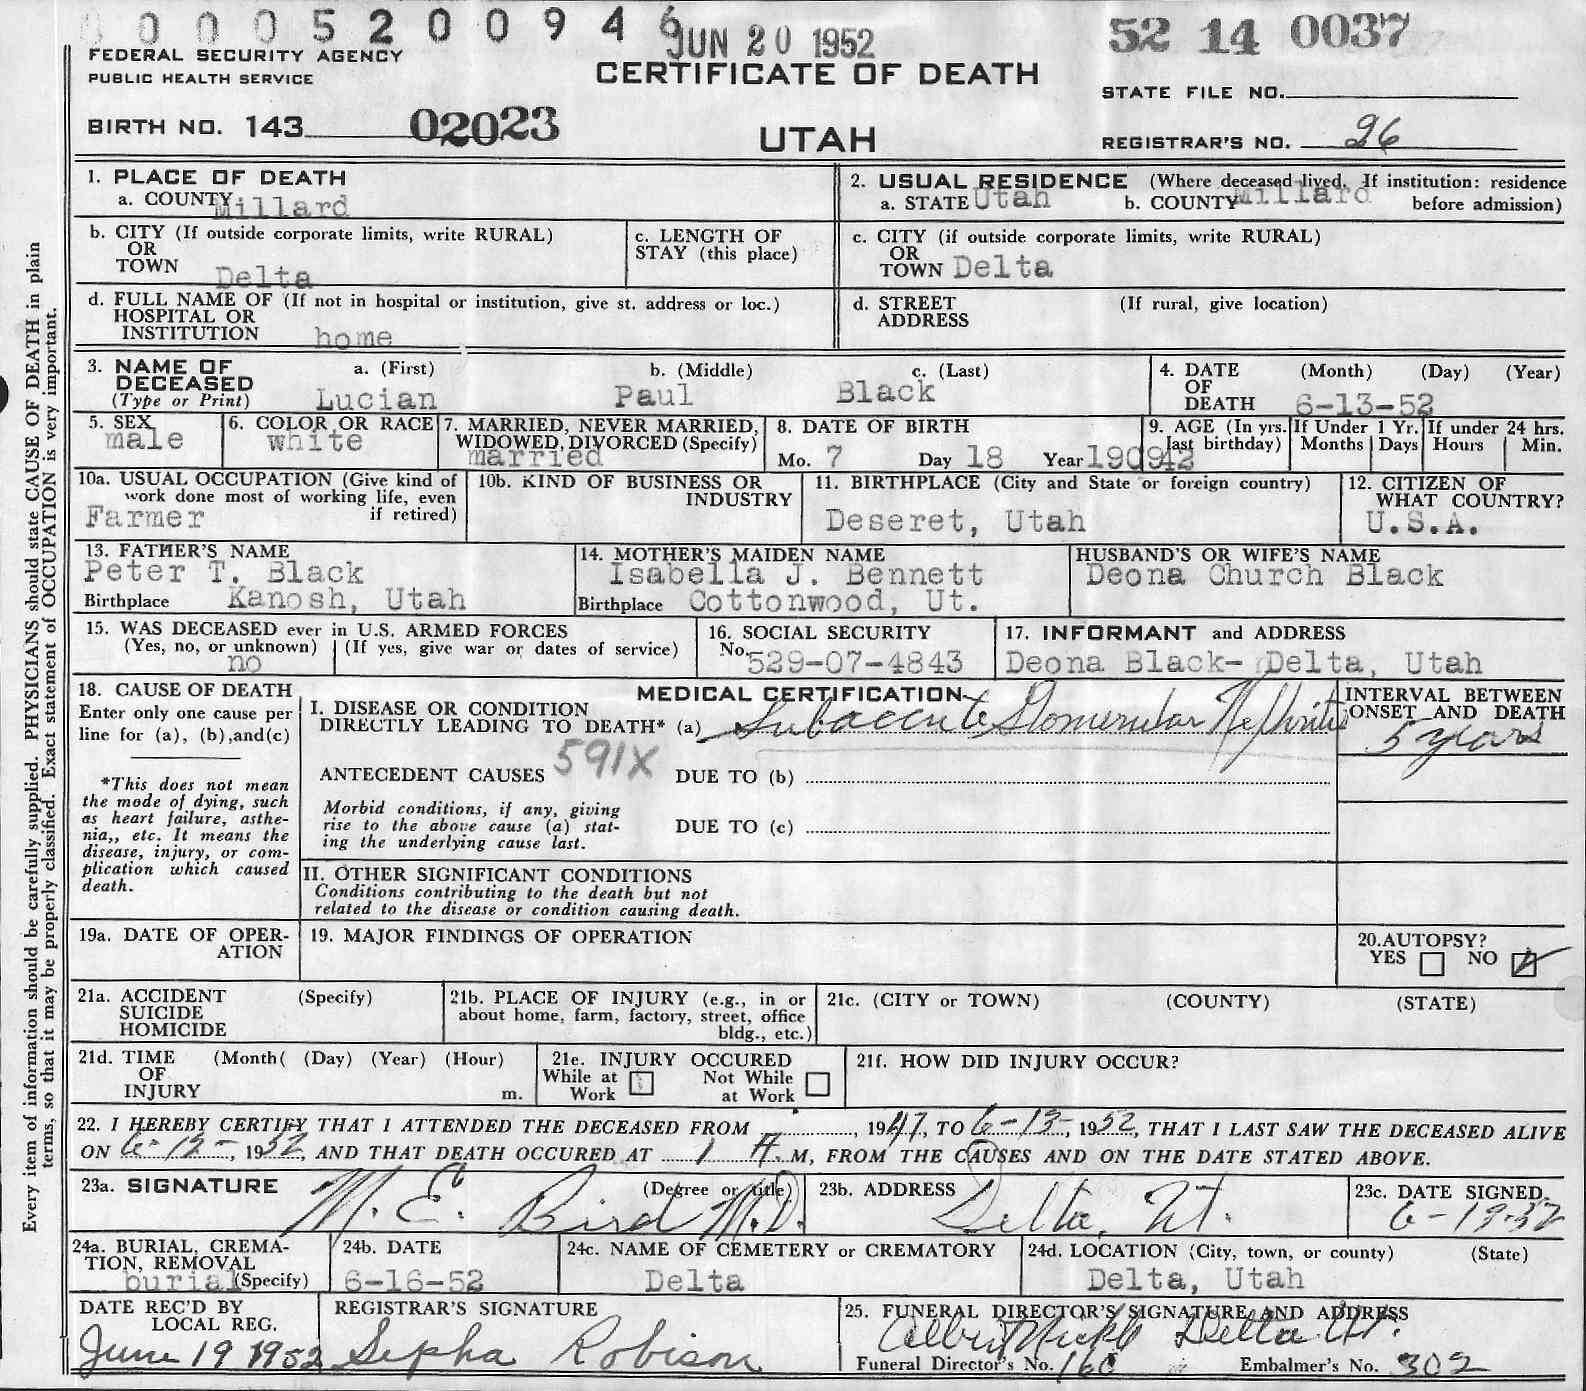 0 0 0 5 2 0 0 9 4 6 JUN 20 1952 52 14 0037
FEDERAL SECURITY AGENCY
PUBLIC HEALTH SERVICE
CERTIFICATE OF DEATH
STATE FILE NO.
BIRTH NO. 143 02023 UTAH REGISTRAR'S NO. 26
Every item of information should be carefully supplied. PHYSICIANS should state CAUSE OF DEATH in plain
terms, so that it may be properly classified. Exact statement of OCCUPATION is very important.
1. PLACE OF DEATH
a. COUNTY Millard
2. USUAL RESIDENCE (Where deceased lived. If institution: residence
a. STATE Utah b. COUNTY Millard before admission)
b. CITY (If outside corporate limits, write RURAL)
OR
TOWN Delta
c. LENGTH OF
STAY (this place)
c. CITY (if outside corporate limits, write RURAL)
OR
TOWN Delta
d. FULL NAME OF (If not in hospital or institution, give st. address or loc.)
HOSPITAL OR
INSTITUTION home
d. STREET (If rural, give location)
ADDRESS
3. NAME OF a. (First) b. (Middle) c. (Last)
DECEASED
(Type or Print) Lucian Paul Black
4. DATE (Month) (Day) (Year)
OF
DEATH 6-13-52
5. SEX
male
6. COLOR OR RACE
white
7. MARRIED, NEVER MARRIED,
WIDOWED, DIVORCED (Specify)
married
8. DATE OF BIRTH
Mo. 7 Day 18 Year 1909
9. AGE (In yrs.
last birthday) 42
If Under 1 Yr.
Months Days
If under 24 hrs.
Hours Min.
10a. USUAL OCCUPATION (Give kind of
work done most of working life, even
if retired)
Farmer
10b. KIND OF BUSINESS OR
INDUSTRY
11. BIRTHPLACE (City and State or foreign country)
Deseret, Utah
12. CITIZEN OF
WHAT COUNTRY?
U.S.A.
13. FATHER'S NAME
Peter T. Black
Birthplace Kanosh, Utah
14. MOTHER'S MAIDEN NAME
Isabella J. Bennett
Birthplace Cottonwood, Ut.
HUSBAND'S OR WIFE'S NAME
Deona Church Black
15. WAS DECEASED ever in U.S. ARMED FORCES
(Yes, no, or unknown) (If yes, give war or dates of service)
no
16. SOCIAL SECURITY
No. 529-07-4843
17. INFORMANT and ADDRESS
Deona Black- Delta, Utah
18. CAUSE OF DEATH
Enter only one cause per
line for (a), (b), and (c)
*This does not mean
the mode of dying, such
as heart failure, asthe-
nia,, etc. It means the
disease, injury, or com-
plication which caused
death.
MEDICAL CERTIFICATION
I. DISEASE OR CONDITION
DIRECTLY LEADING TO DEATH* (a) Subaccute Glomerular Nephritis
INTERVAL BETWEEN
ONSET AND DEATH
5 years
591X
ANTECEDENT CAUSES DUE TO (b)
Morbid conditions, if any, giving
rise to the above cause (a) stat-
ing the underlying cause last.
DUE TO (c)
II. OTHER SIGNIFICANT CONDITIONS
Conditions contributing to the death but not
related to the disease or condition causing death.
19a. DATE OF OPER-
ATION
19. MAJOR FINDINGS OF OPERATION
20. AUTOPSY?
YES NO
21a. ACCIDENT (Specify)
SUICIDE
HOMICIDE
21b. PLACE OF INJURY (e.g., in or
about home, farm, factory, street, office
bldg., etc.)
21c. (CITY or TOWN) (COUNTY) (STATE)
21d. TIME (Month( (Day) (Year) (Hour)
OF
INJURY m.
21e. INJURY OCCURED
While at Not While
Work at Work
21f. HOW DID INJURY OCCUR?
22. I HEREBY CERTIFY THAT I ATTENDED THE DECEASED FROM , 1947, TO 6-13-, 1952, THAT I LAST SAW THE DECEASED ALIVE
ON 6-12-, 1952, AND THAT DEATH OCCURED AT 1 A. M, FROM THE CAUSES AND ON THE DATE STATED ABOVE.
23a. SIGNATURE (Degree or title)
M. E. Bird M.D.
23b. ADDRESS
Delta, Ut.
23c. DATE SIGNED
6-19-52
24a. BURIAL, CREMA-
TION, REMOVAL
burial (Specify)
24b. DATE
6-16-52
24c. NAME OF CEMETERY or CREMATORY
Delta
24d. LOCATION (City, town, or county) (State)
Delta, Utah
DATE REC'D BY
LOCAL REG.
June 19 1952
REGISTRAR'S SIGNATURE
Sepha Robison
25. FUNERAL DIRECTOR'S SIGNATURE AND ADDRESS
Delta Ut.
Funeral Director's No. Embalmer's No. 302